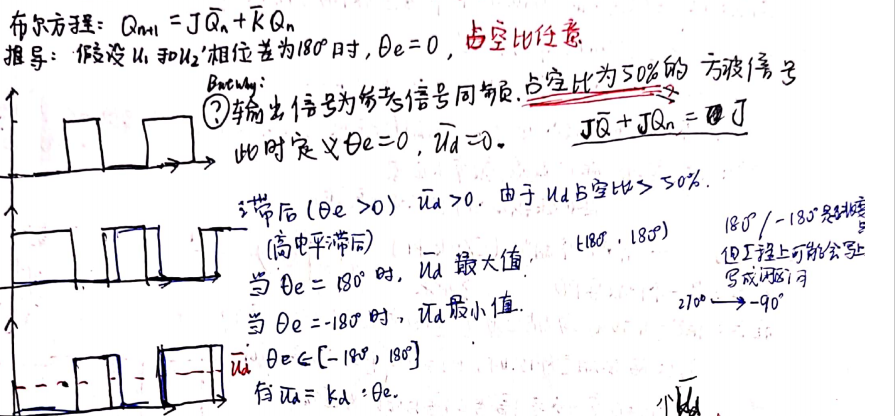 布尔方程: Qn+1 = JQ̄n + K̄Qn
推导: 假设 u1 和 u2' 相位差为180°时, θe=0, 占空比任意
But why:
? 输出信号为参考信号同频, 占空比为50%的方波信号
JQ̄ + JQn = J
此时定义 θe=0, ūd=0.
滞后(θe>0) ūd>0. 由于 ud占空比>50%.
(高电平滞后)
(-180°, 180°)
180°/-180°
但工程上可能会写上
写成闭区间
当 θe=180°时, ūd 最大值.
270° → -90°
当 θe=-180°时, ūd最小值.
ūd
θe∈[-180°, 180°]
有 ūd = kd·θe.